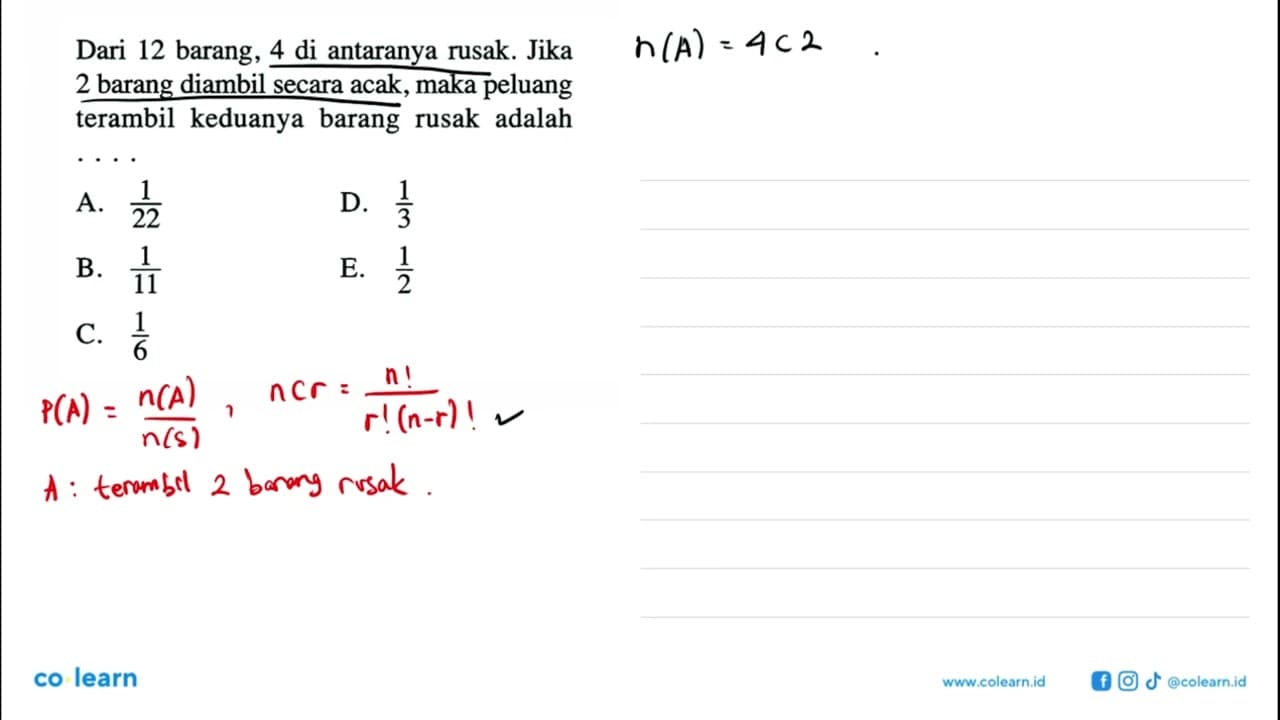 Dari 12 barang, 4 di antaranya rusak. Jika
2 barang diambil secara acak, maka peluang
terambil keduanya barang rusak adalah
. . . .
A. 1/22
D. 1/3
B. 1/11
E. 1/2
C. 1/6
P(A) = n(A)/n(S) , nCr = n!/r!(n-r)! ✓
A : terambil 2 barang rusak .
n(A) = 4C2 .
co learn
www.colearn.id
@colearn.id